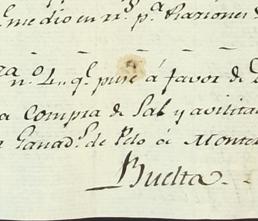 medio en 12 rs. pa. Raziones
no. 4.. qe. puse á favor de
a Compra de Sal y avilitar
Ganads. de Pelo ó Monte
Buelta.